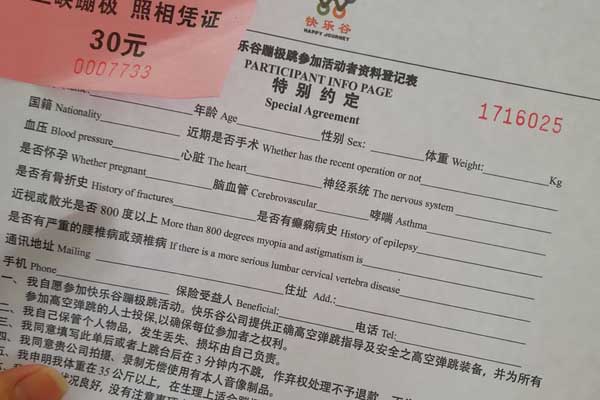 三峡蹦极 照相凭证
30元
0007733
快乐谷
HAPPY JOURNEY
乐谷蹦极跳参加活动者资料登记表
PARTICIPANT INFO PAGE
特别约定
Special Agreement
1716025
国籍 Nationality 年龄 Age 性别 Sex: 体重 Weight: Kg
血压 Blood pressure 近期是否手术 Whether has the recent operation or not
是否怀孕 Whether pregnant 心脏 The heart 神经系统 The nervous system
是否有骨折史 History of fractures 脑血管 Cerebrovascular 哮喘 Asthma
近视或散光是否 800 度以上 More than 800 degrees myopia and astigmatism is 是否有癫痫病史 History of epilepsy
是否有严重的腰椎病或颈椎病 If there is a more serious lumbar cervical vertebra disease
通讯地址 Mailing 住址 Add.:
手机 Phone 保险受益人 Beneficial: 电话 Tel:
一、我自愿参加快乐谷蹦极跳活动。快乐谷公司提供正确高空弹跳指导及安全之高空弹跳装备，并为所有
参加高空弹跳的人士投保，以确保每位参加者之权利。
二、我自己保管个人物品，发生丢失、损坏由自己负责。
三、我同意填写此单后或者上跳台后在 3 分钟内不跳，作弃权处理不予退款
四、我同意贵公司拍摄、录制无偿使用有本人音像制品。
五、我申明我体重在 35 公斤以上，在生理上适合蹦
状况良好，没有注意事项